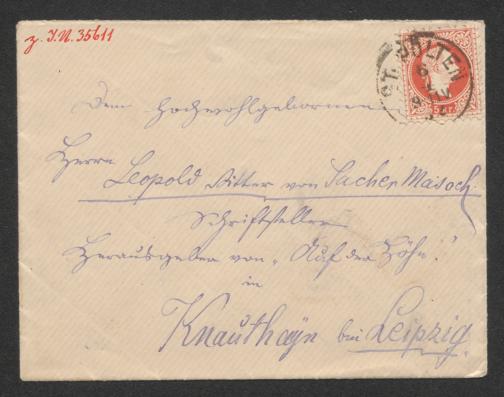 z. I.N. 35611
ST. PÖLTEN
5 kr.
Dem Hochwohlgebornen
Herrn
Leopold Ritter von Sacher Masoch
Schriftsteller
Herausgeber von „Auf der Höhe“
in
Knauthayn bei Leipzig.